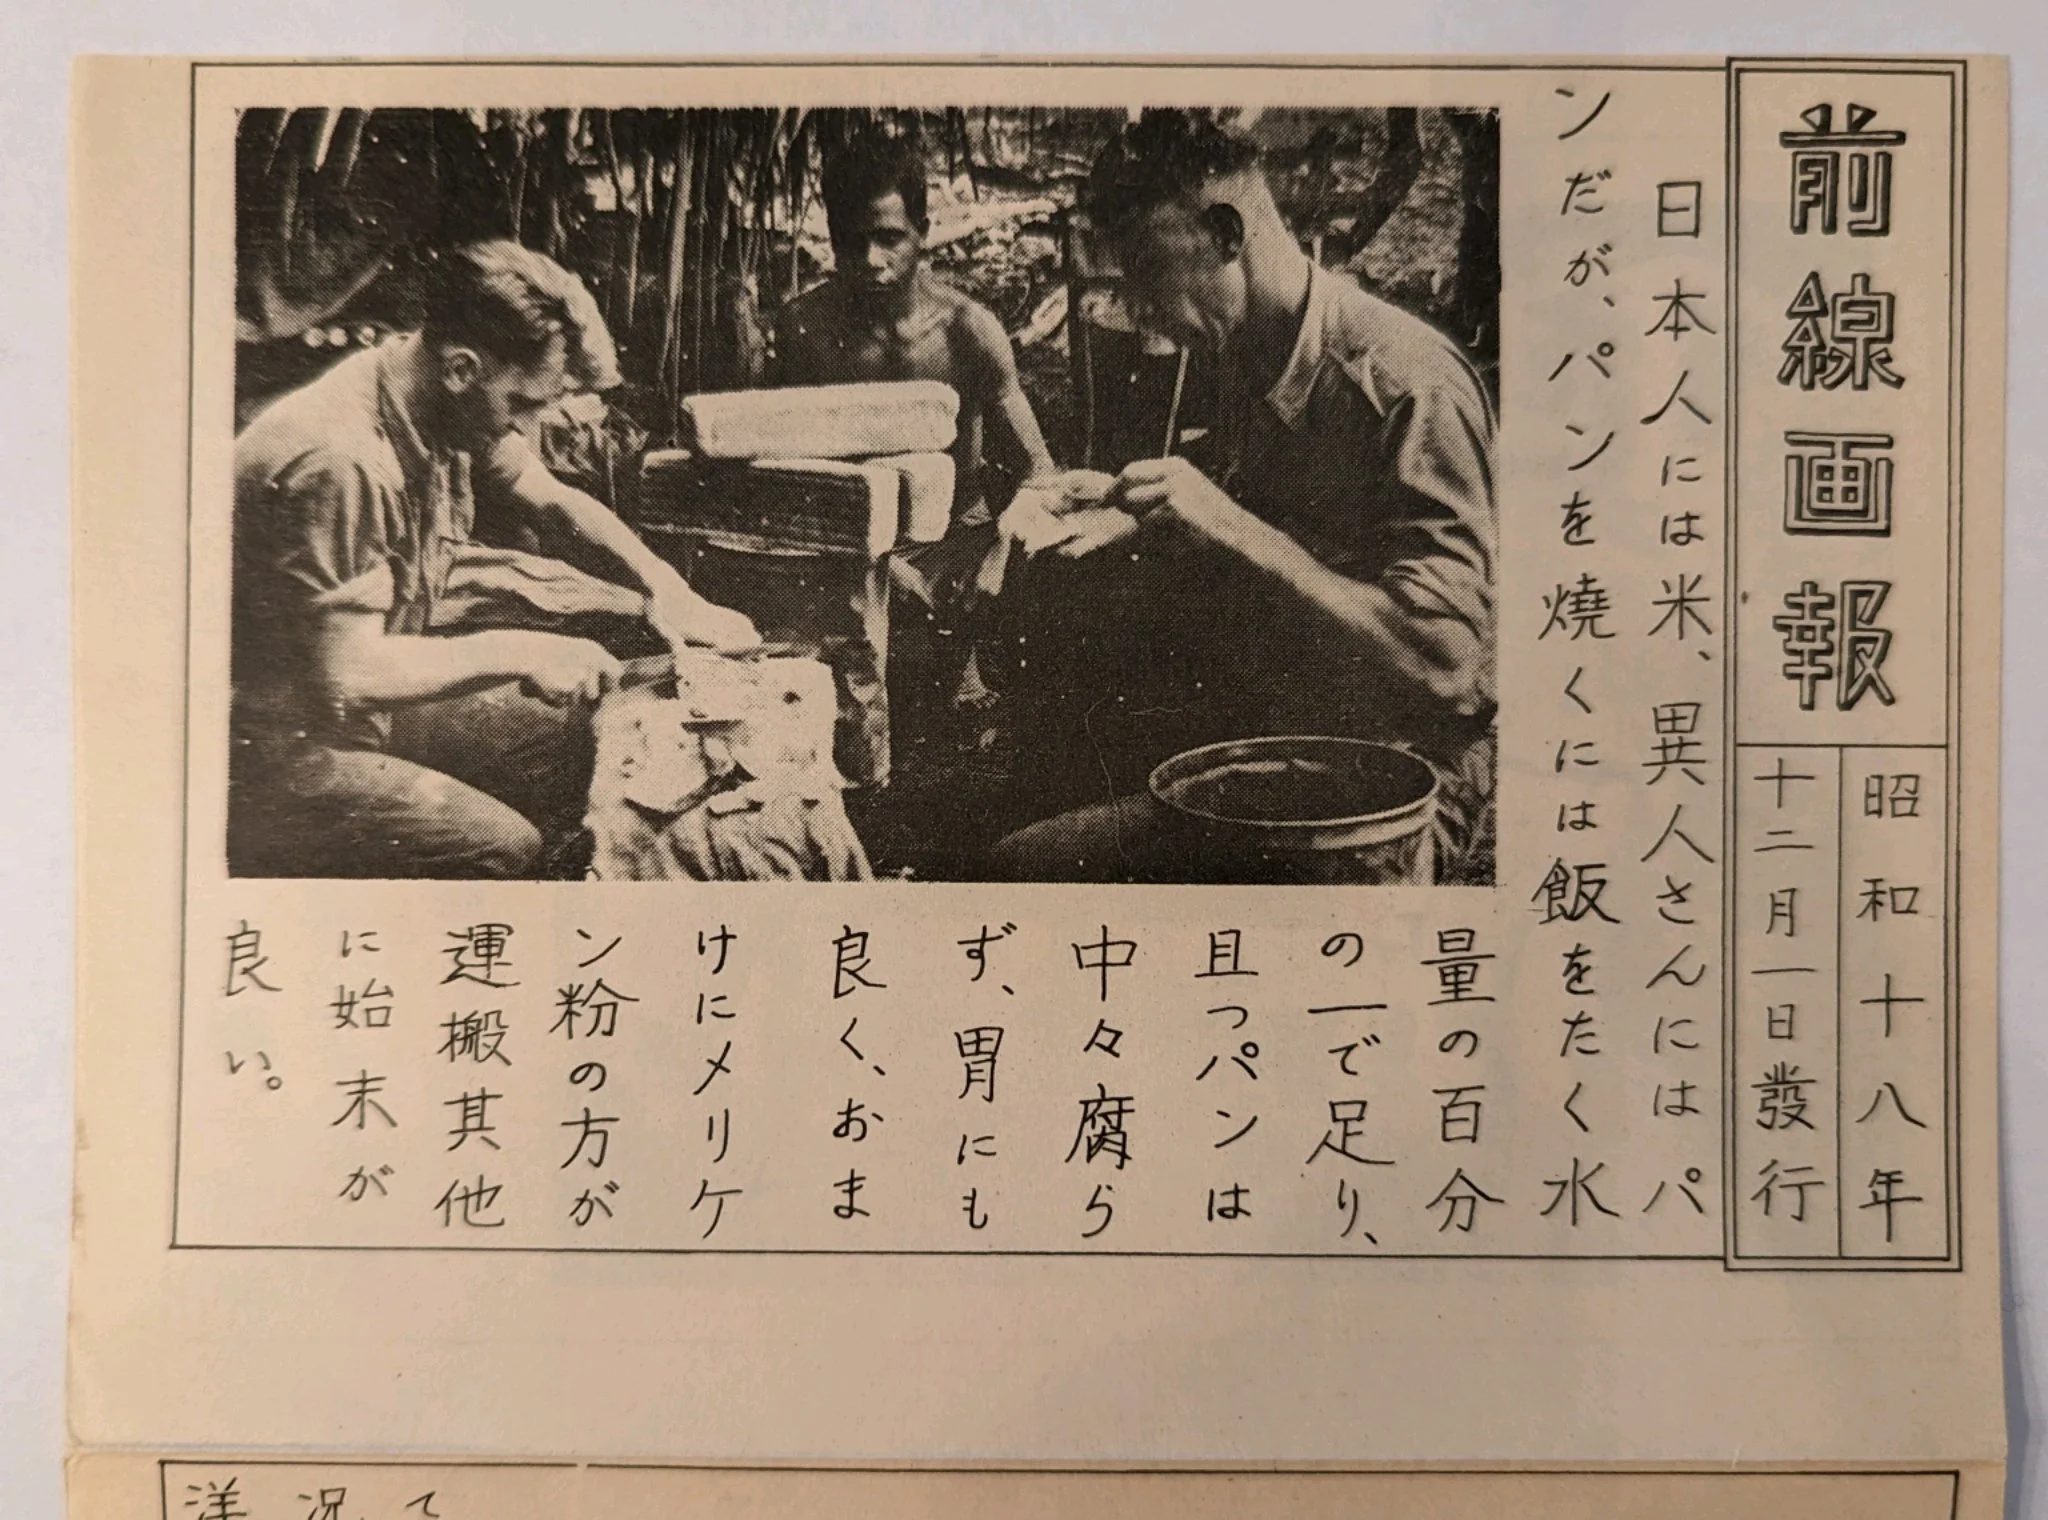 前線画報
昭和十八年
十二月一日發行
日本人には米、異人さんにはパ
ンだが、パンを燒くには飯をたく水
量の百分
の一で足り、
且つパンは
中々腐ら
ず、胃にも
良く、おま
けにメリケ
ン粉の方が
運搬其他
に始末が
良い。
て
況
洋